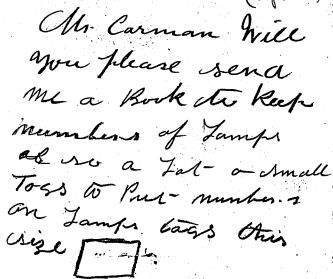 Mr. Carman Will
you please send
me a Book to Keep
numbers of Lamps
also a Lot o small
Tags to Put numbers
on Lamps tags this
size